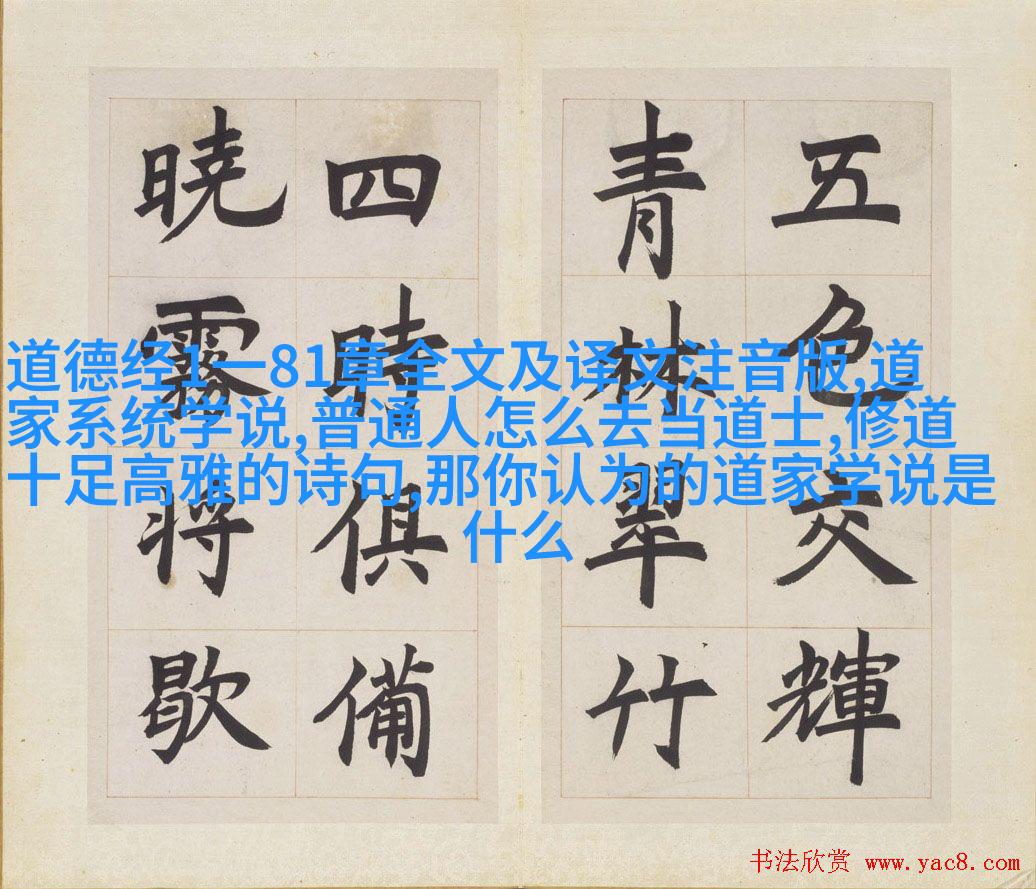 五色交輝
青林翠竹
四時俱備
曉霧將歇
道德经1一81章全文及译文注音版,道
家系统学说,普通人怎么去当道士,修道
十足高雅的诗句,那你认为的道家学说是
什么
书法欣赏 www.yac8.com